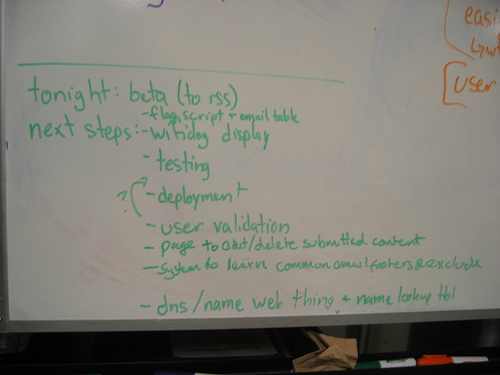 easi
user
tonight: beta (to rss)
- flag script + email table
next steps: - display
- testing
? - deployment
- user validation
- page to edit/delete submitted content
- system to learn common email footers & exclude
- dns/name web thing + name lookup tbl